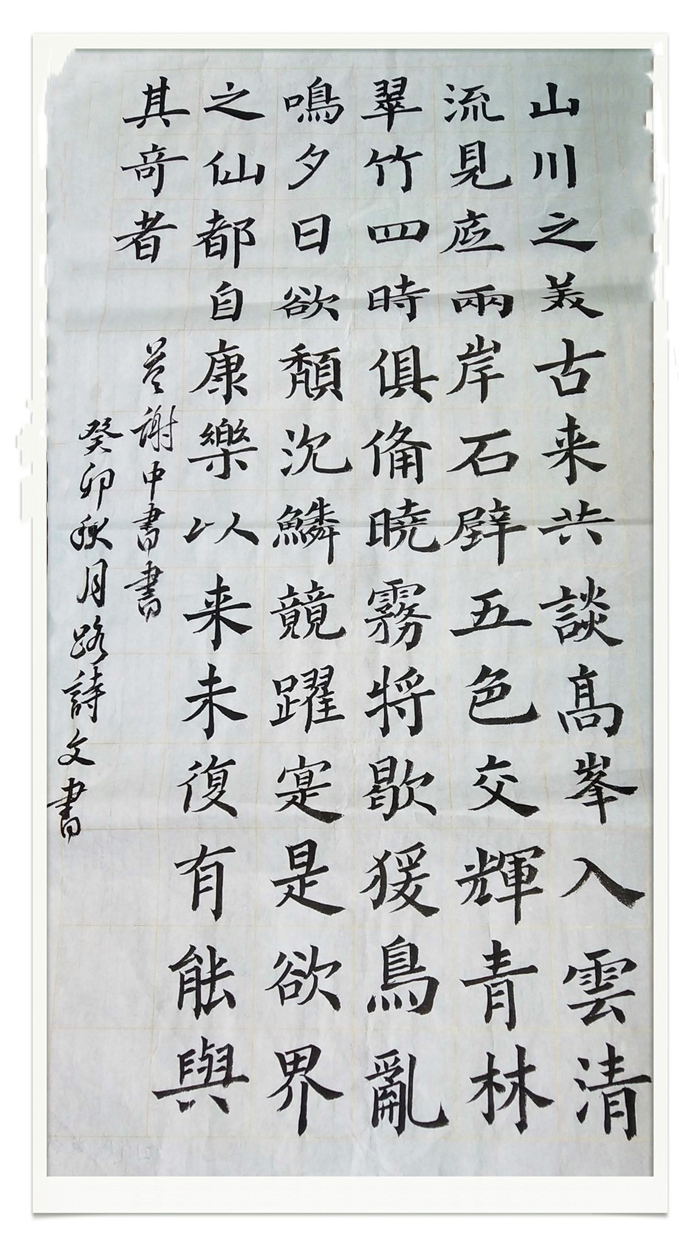 山川之美古来共談高峯入雲清
流見底兩岸石壁五色交輝青林
翠竹四時俱備曉霧將歇猨鳥亂
鳴夕日欲頹沉鱗競躍寔是欲界
之仙都自康樂以来未復有能與
其奇者
答謝中書書
癸卯秋月路詩文書